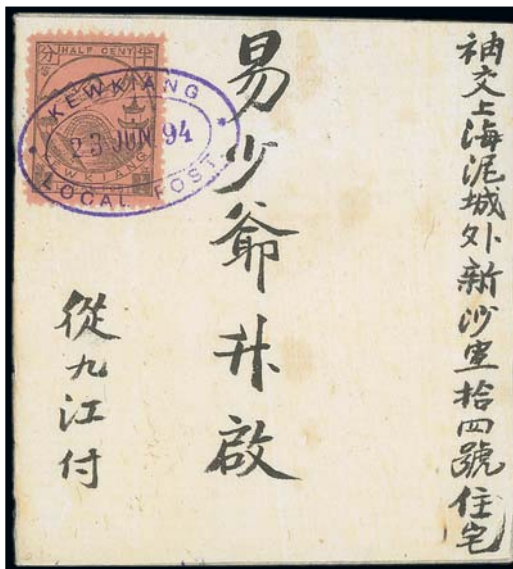 袖交上海泥城外新沙里拾四號住宅
易少爺升啟
從九江付
HALF CENT
KEWKIANG
23 JUN 94
LOCAL POST
KEWKIANG